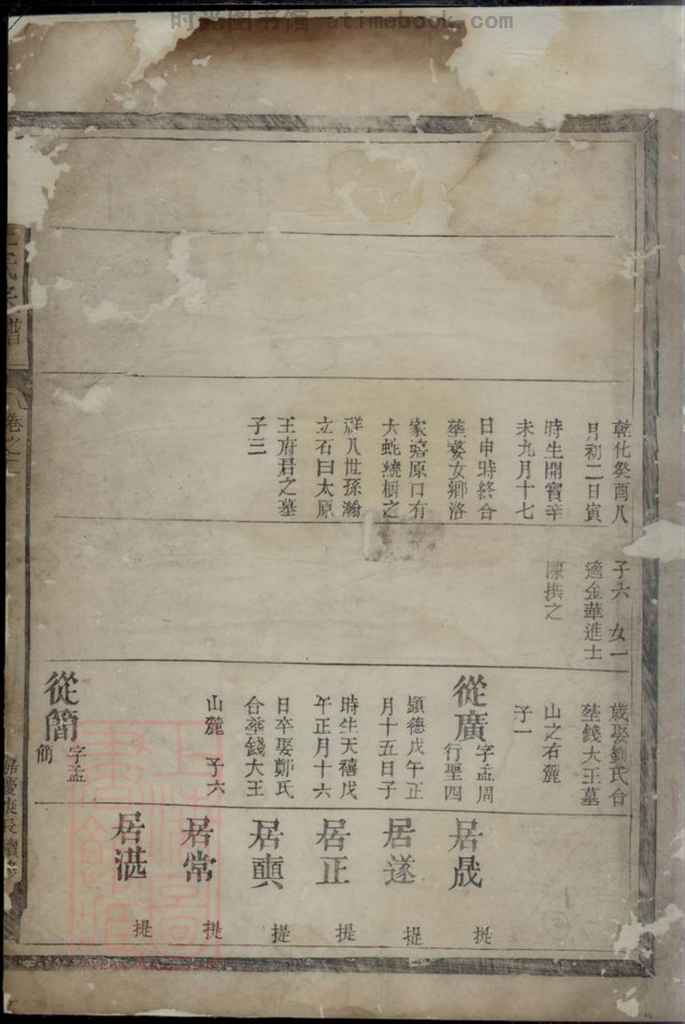 时光图书馆 atimebook.com
乾化癸酉八
月初二日寅
時生開寶辛
未九月十七
日申時終合
塟婺女鄉洛
家嬉原口有
大蛇繞槨之
祥八世孫瀚
立石曰太原
王府君之墓
子三
子六 女一
適金華進士
陳撰之
歲娶劉氏合
塟錢大王墓
山之右麓
子一
從廣 字孟周
行聖四
顯德戊午正
月十五日子
時生天禧戊
午正月十六
日卒娶鄭氏
合塟錢大王
山麓 子六
從簡 字孟
簡
居晟 提
居遂 提
居正 提
居奭 提
居常 提
居湛 提
卷之